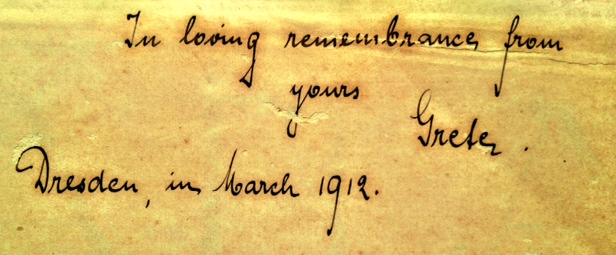 In loving remembrance from
yours
Grete.
Dresden, in March 1912.